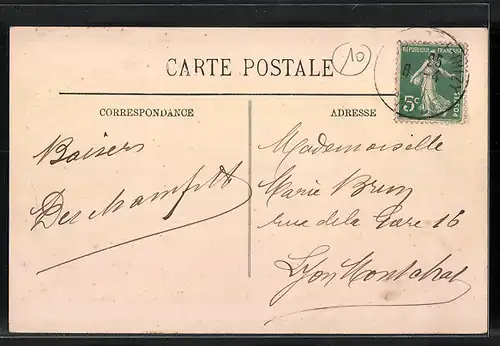 10
REPUBLIQUE FRANÇAISE
5c
POSTES
CARTE POSTALE
CORRESPONDANCE
ADRESSE
Baisers
Mademoiselle
Marie Brun
rue de la Gare 16
Lyon Montchat